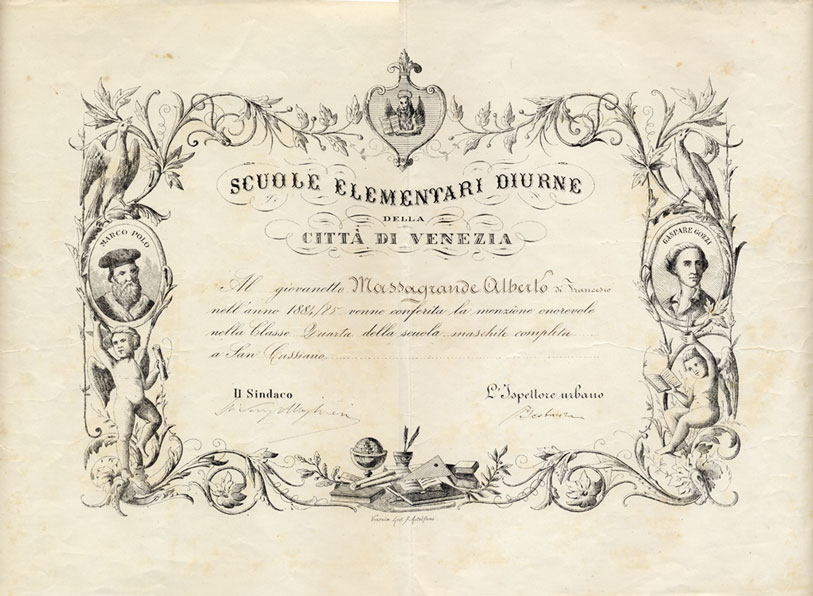 SCUOLE ELEMENTARI DIURNE
DELLA
CITTÀ DI VENEZIA
MARCO POLO
GASPARE GOZZI
Al giovanetto Massagrande Alberto di Francesco
nell'anno 1884/85 venne conferita la menzione onorevole
nella Classe Quarta della scuola maschile completa
a San Cassiano
Il Sindaco
L'Ispettore urbano
Venezia Lit.